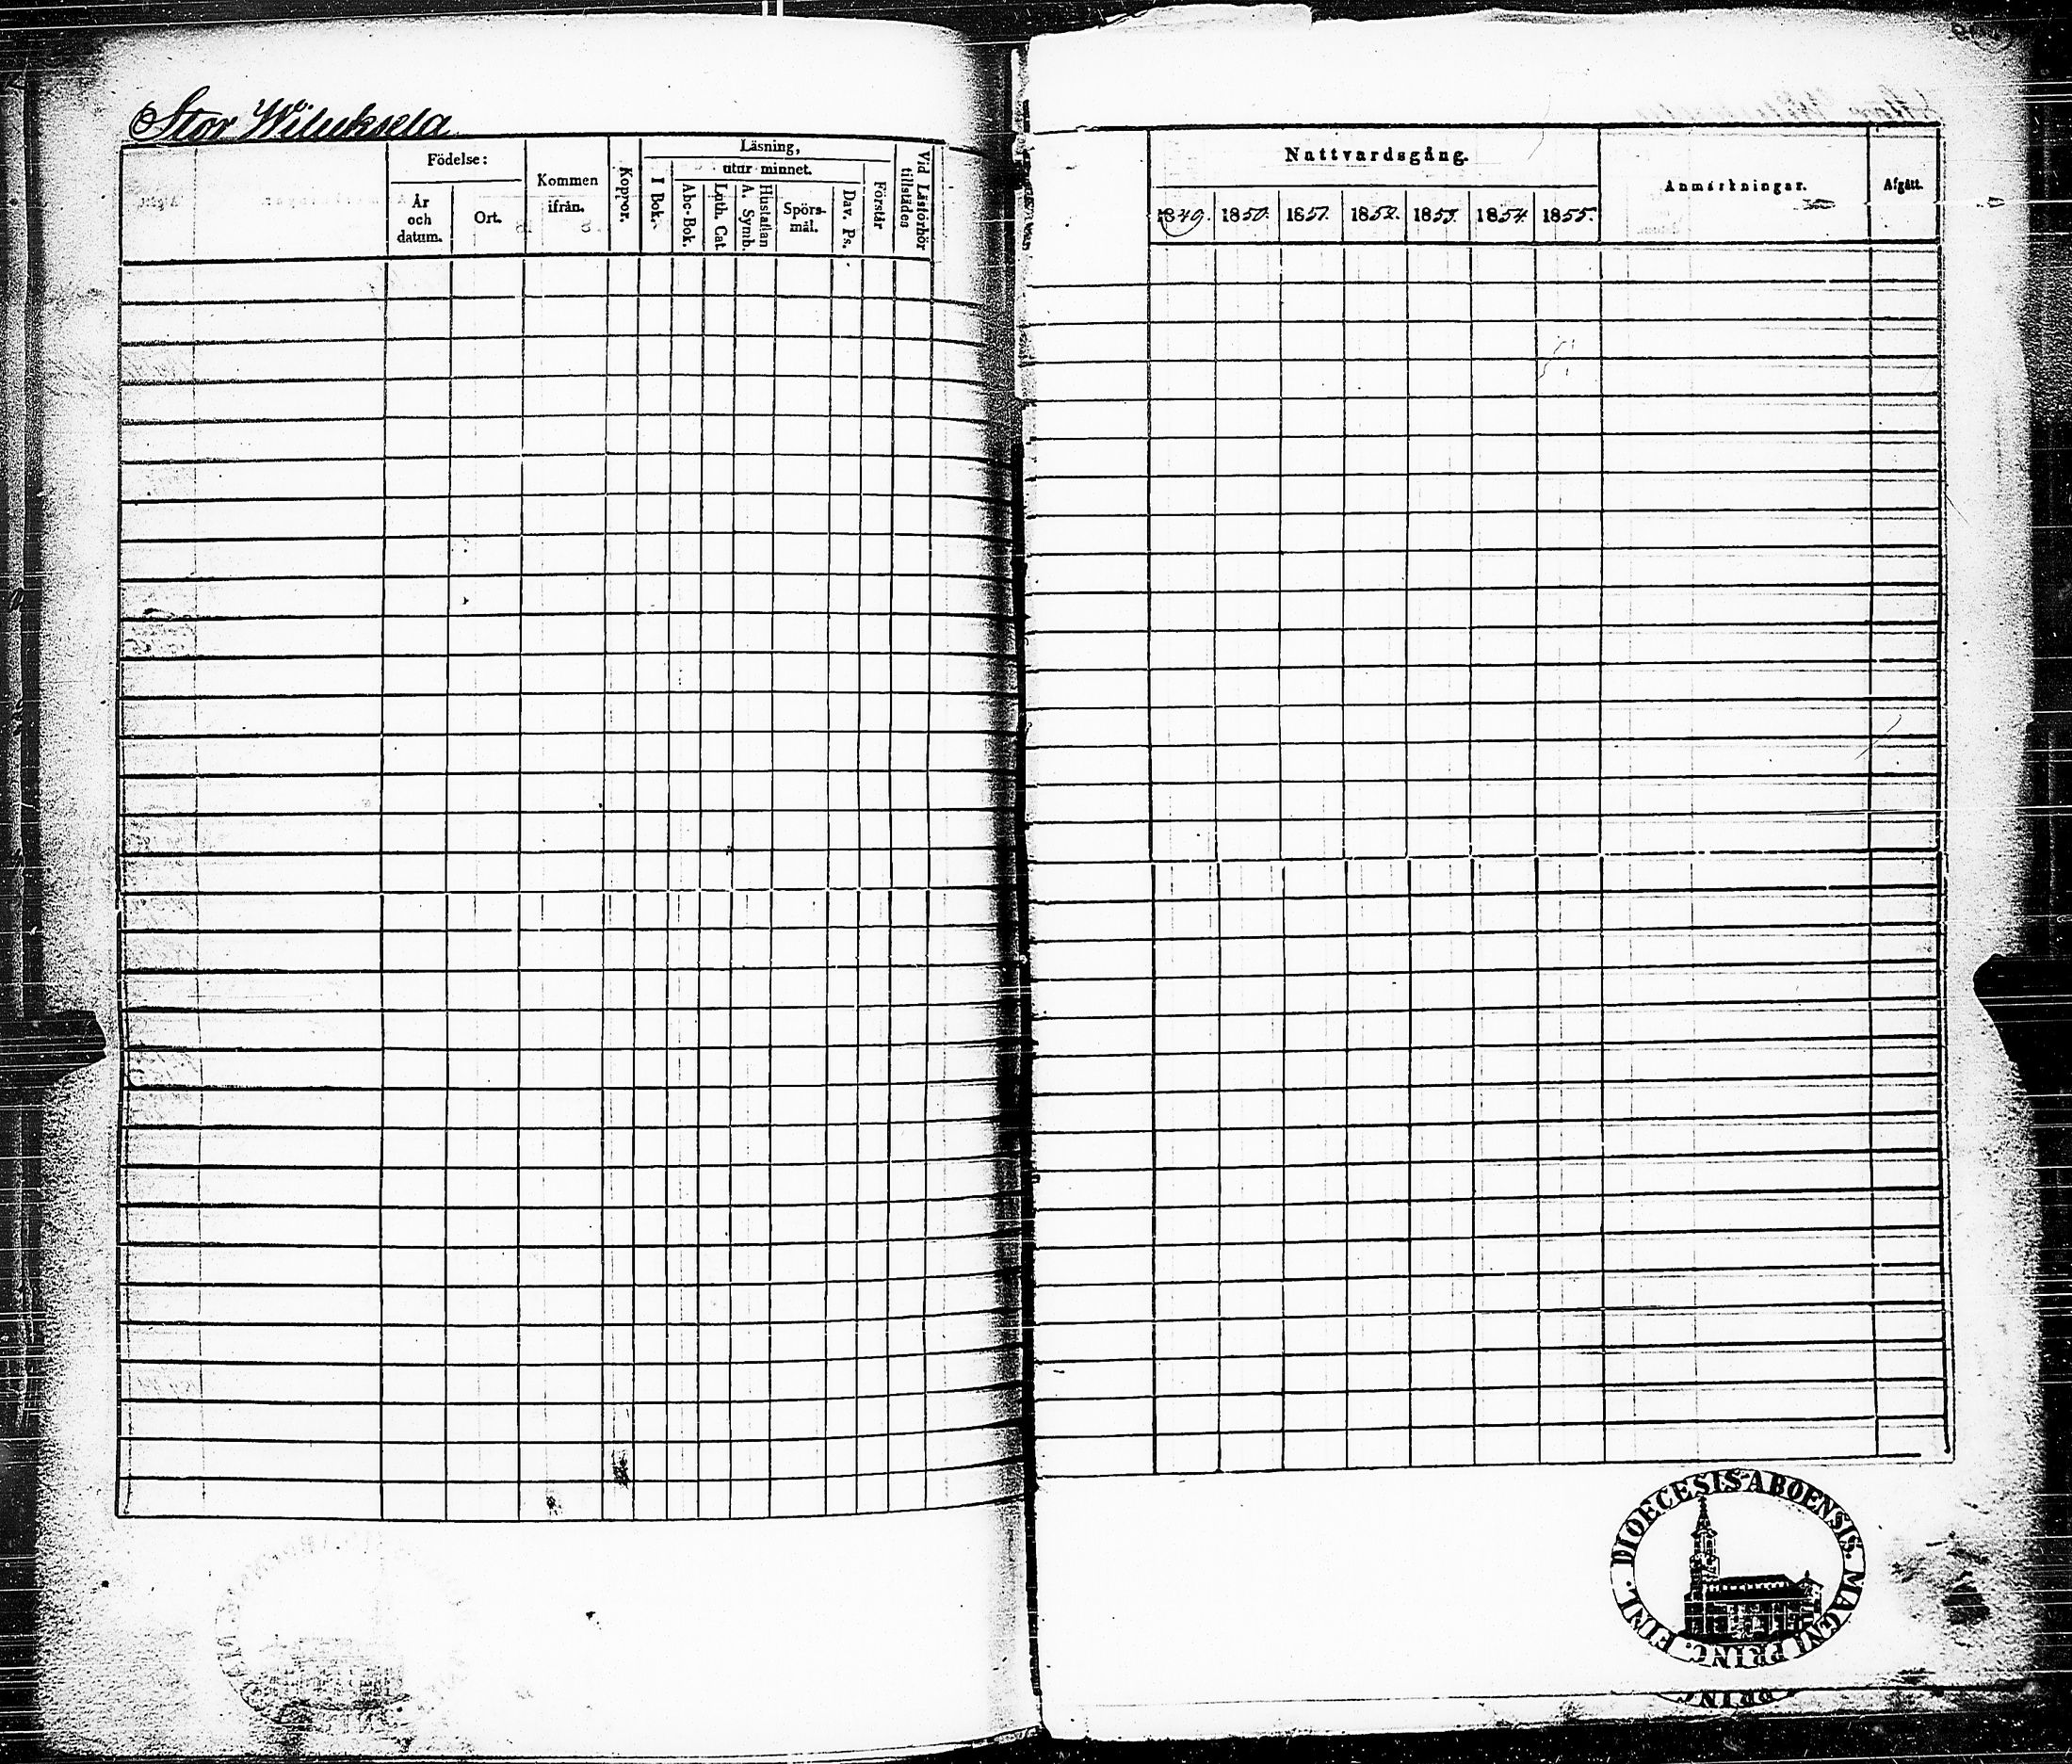 Stor Wiluksela
Födelse:
År och datum.
Ort.
Kommen ifrån.
Koppor.
Läsning,
utur minnet.
I Bok.
Abc-Bok.
Luth. Cat.
Hustaflan A. Symb.
Spörsmål.
Dav. Ps.
Förstår
Vid Läsförhör tillstädes
Nattvardsgång.
1849. 1850. 1851. 1852. 1853. 1854. 1855.
Anmärkningar.
Afgått.
DIOECESIS ABOENSIS. MAGNI PRINC. FINL.